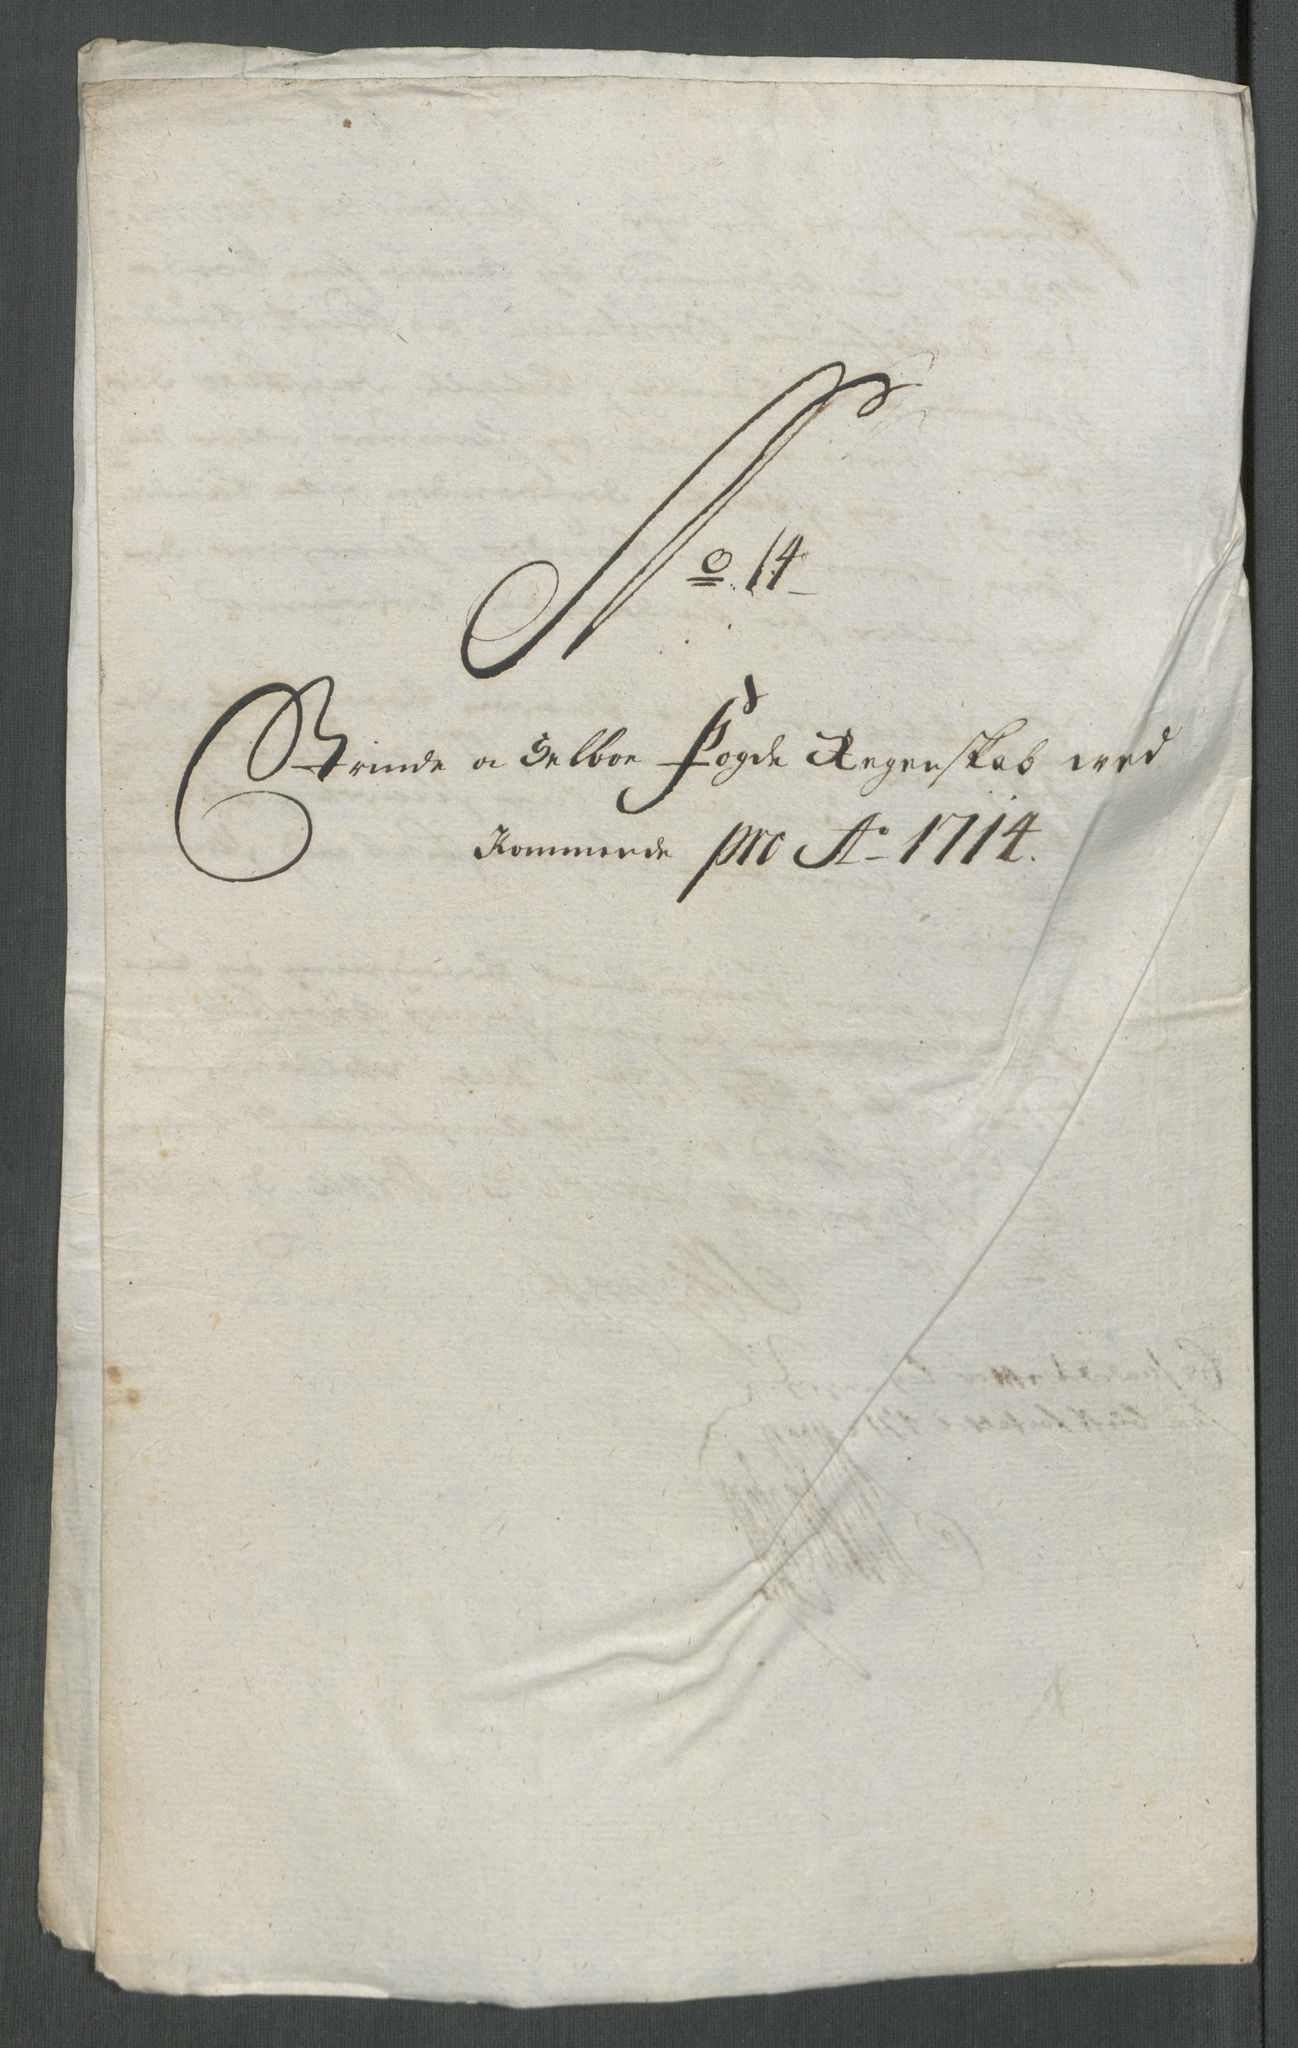 No. 14
Strinde o Selboe Fogde Regenskab wed
Kommende pro Ao 1714.